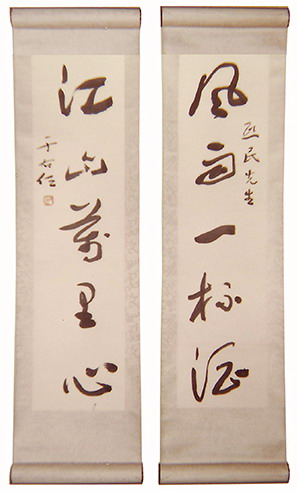 熙民先生
風雨一杯酒
江山萬里心
于右任